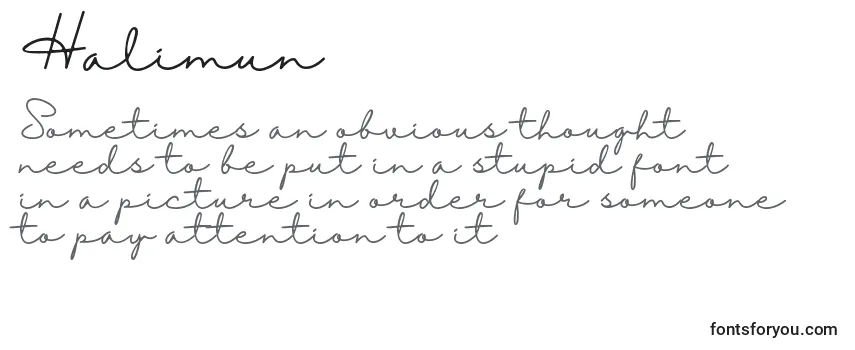 Halimun
Sometimes an obvious thought
needs to be put in a stupid font
in a picture in order for someone
to pay attention to it
fontsforyou.com